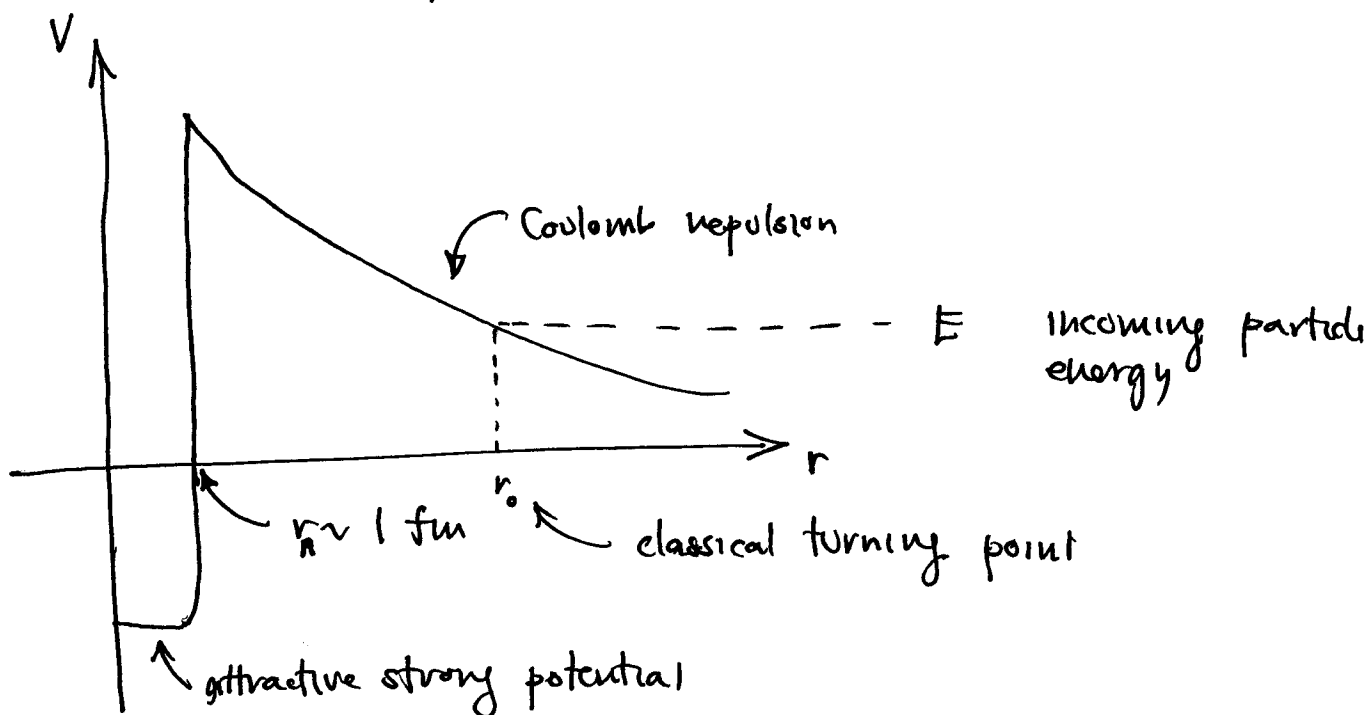 V
Coulomb repulsion
E incoming particle
energy
r
r₀
rₙ ~ 1 fm
classical turning point
attractive strong potential